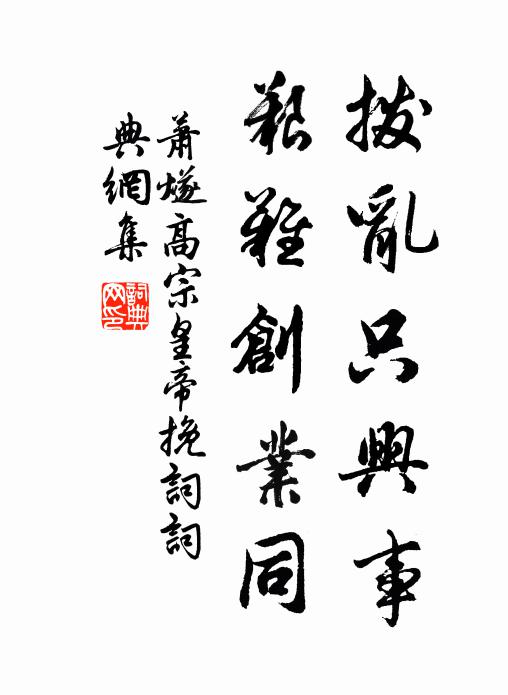 拨亂只興事
艱難創業同
蕭燧高宗皇帝挽詞詞
典網集
詞典网印